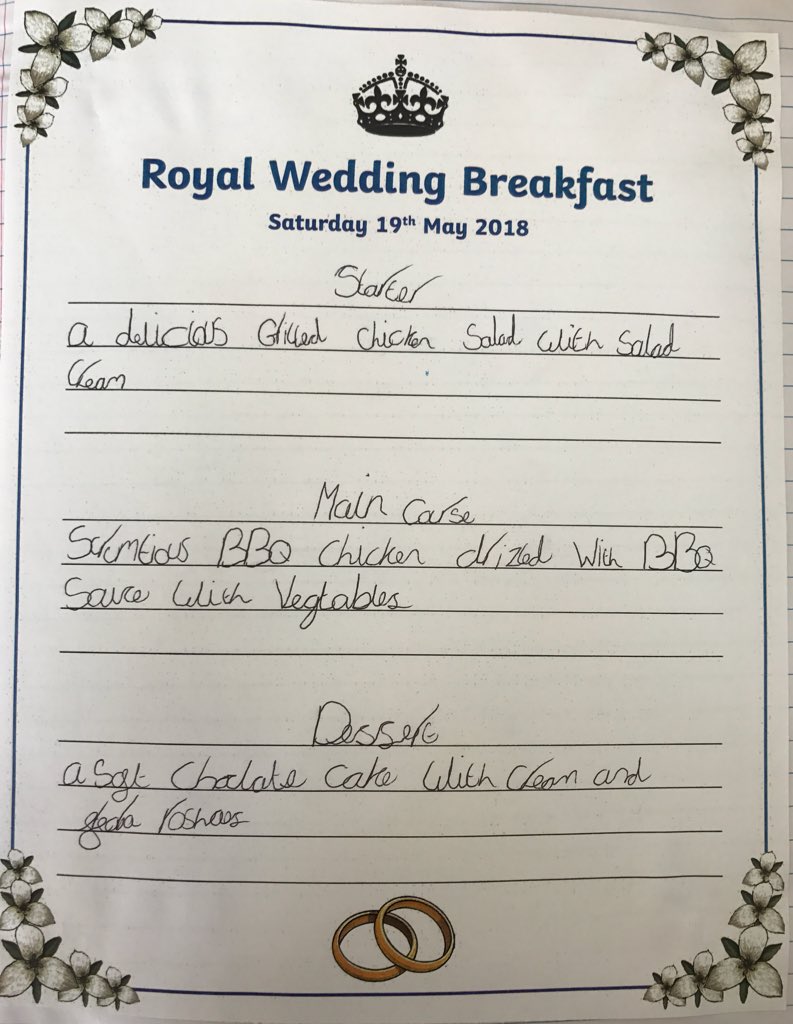 Royal Wedding Breakfast
Saturday 19th May 2018
Starter
a delicious Grilled chicken Salad with Salad
Cream
Main Course
Scrumtious BBQ chicken drizled with BBQ
Sauce With Vegtables
Dessert
a Soft Choclate Cake With Cream and